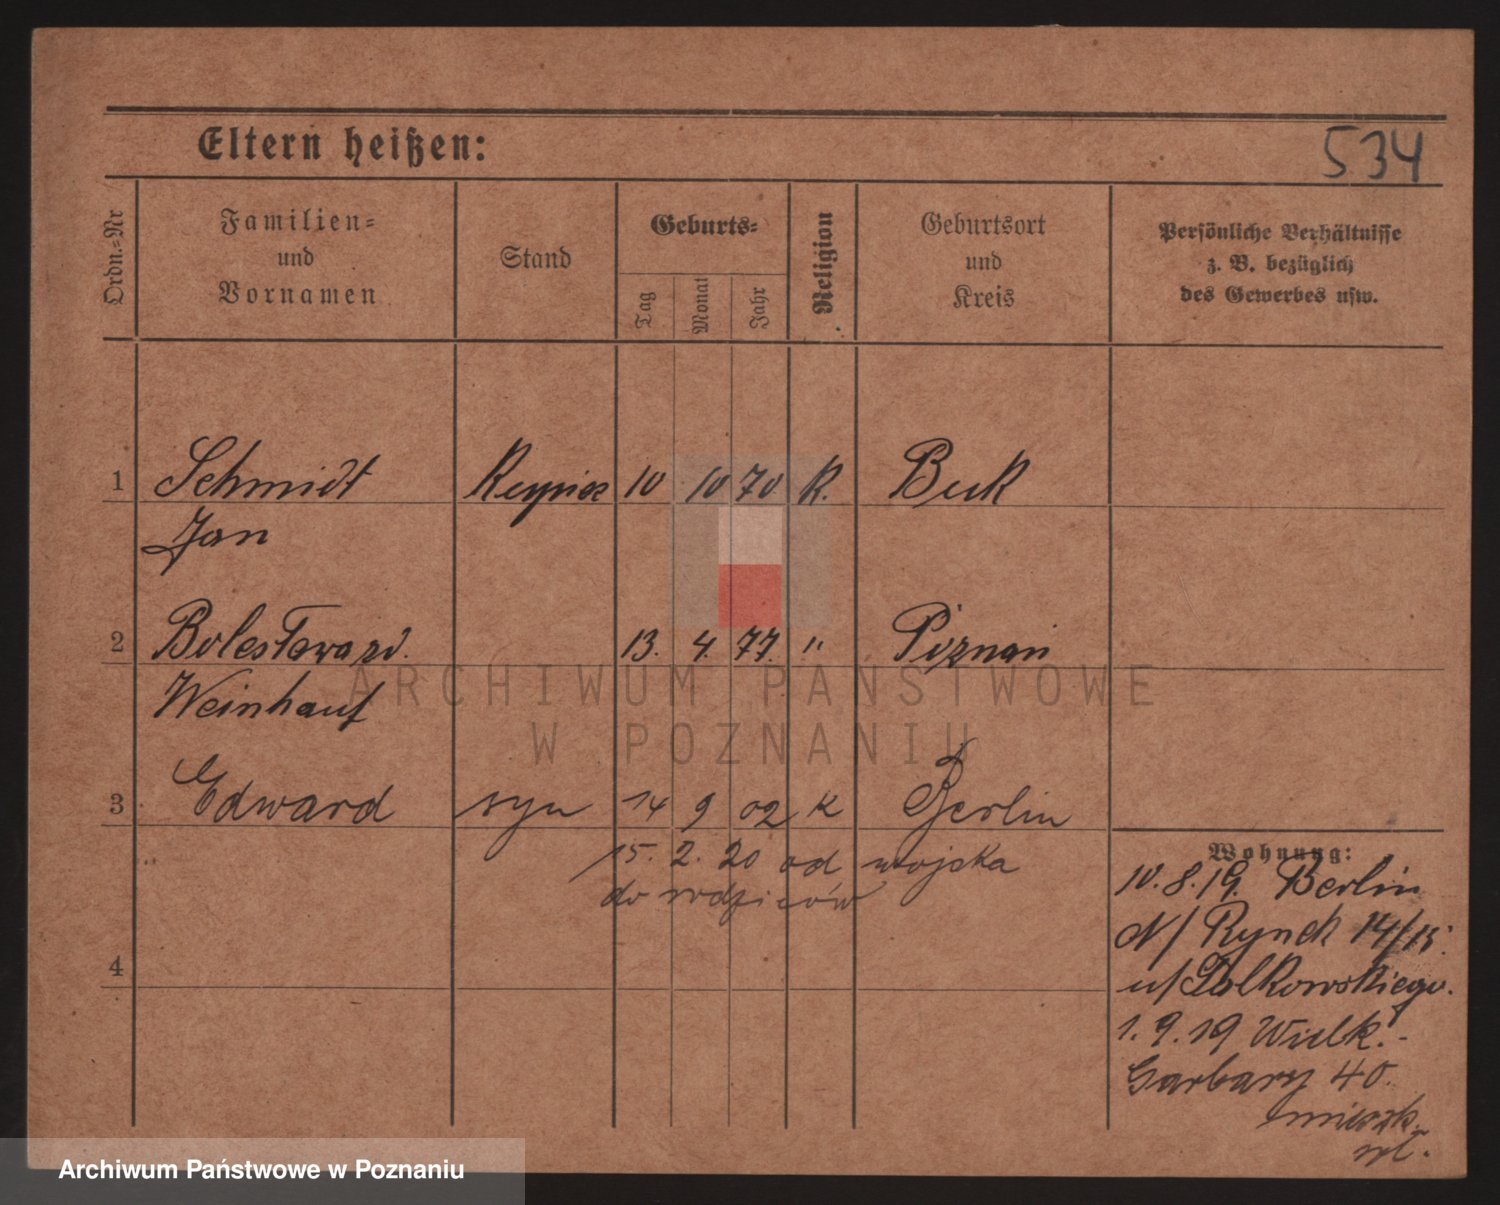 Eltern heißen:
534
Ordn.=Nr
Familien=
und
Vornamen
Stand
Geburts=
Tag
Monat
Jahr
Religion
Geburtsort
und
Kreis
Persönliche Verhältnisse
z. B. bezüglich
des Gewerbes usw.
1 Schmidt Kupiec 10 10 70 K. Buk
Jan
2 Bolesława zd. 13. 4. 77. " Poznań
Weinhauf
3 Edward syn 14 9 02 K Berlin
15. 2. 20 od wojska
do rodziców
4
Wohnung:
10. 8. 19. Berlin
N/ Rynek 14/15.
u/ Polkowskiego.
1. 9. 19 Wielk.-
Garbary 40.
mieszk.
wł.
ARCHIWUM PAŃSTWOWE
W POZNANIU
Archiwum Państwowe w Poznaniu